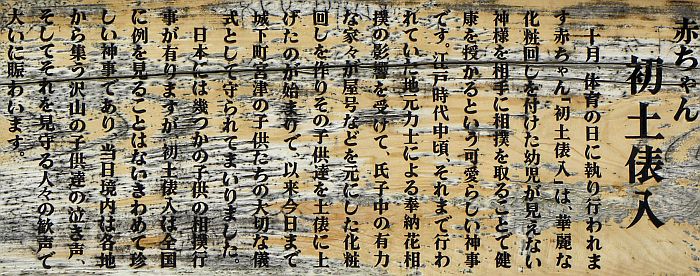 赤ちゃん
初土俵入
十月 体育の日に執り行われま
す赤ちゃん「初土俵入」は、華麗な
化粧回しを付けた幼児が見えない
神様を相手に相撲を取ることで健
康を授かるという可愛らしい神事
です。江戸時代中頃、それまで行わ
れていた地元力士による奉納花相
撲の影響を受けて、氏子中の有力
な家々が屋号などを元にした化粧
回しを作りその子供達を土俵に上
げたのが始まりで、以来今日まで
城下町宮津の子供たちの大切な儀
式として守られてまいりました。
日本には幾つかの子供の相撲行
事が有りますが初土俵入は全国
に例を見ることはないきわめて珍
しい神事であり、当日境内は各地
から集う沢山の子供達の泣き声、
そしてそれを見守る人々の歓声で
大いに賑わいます。